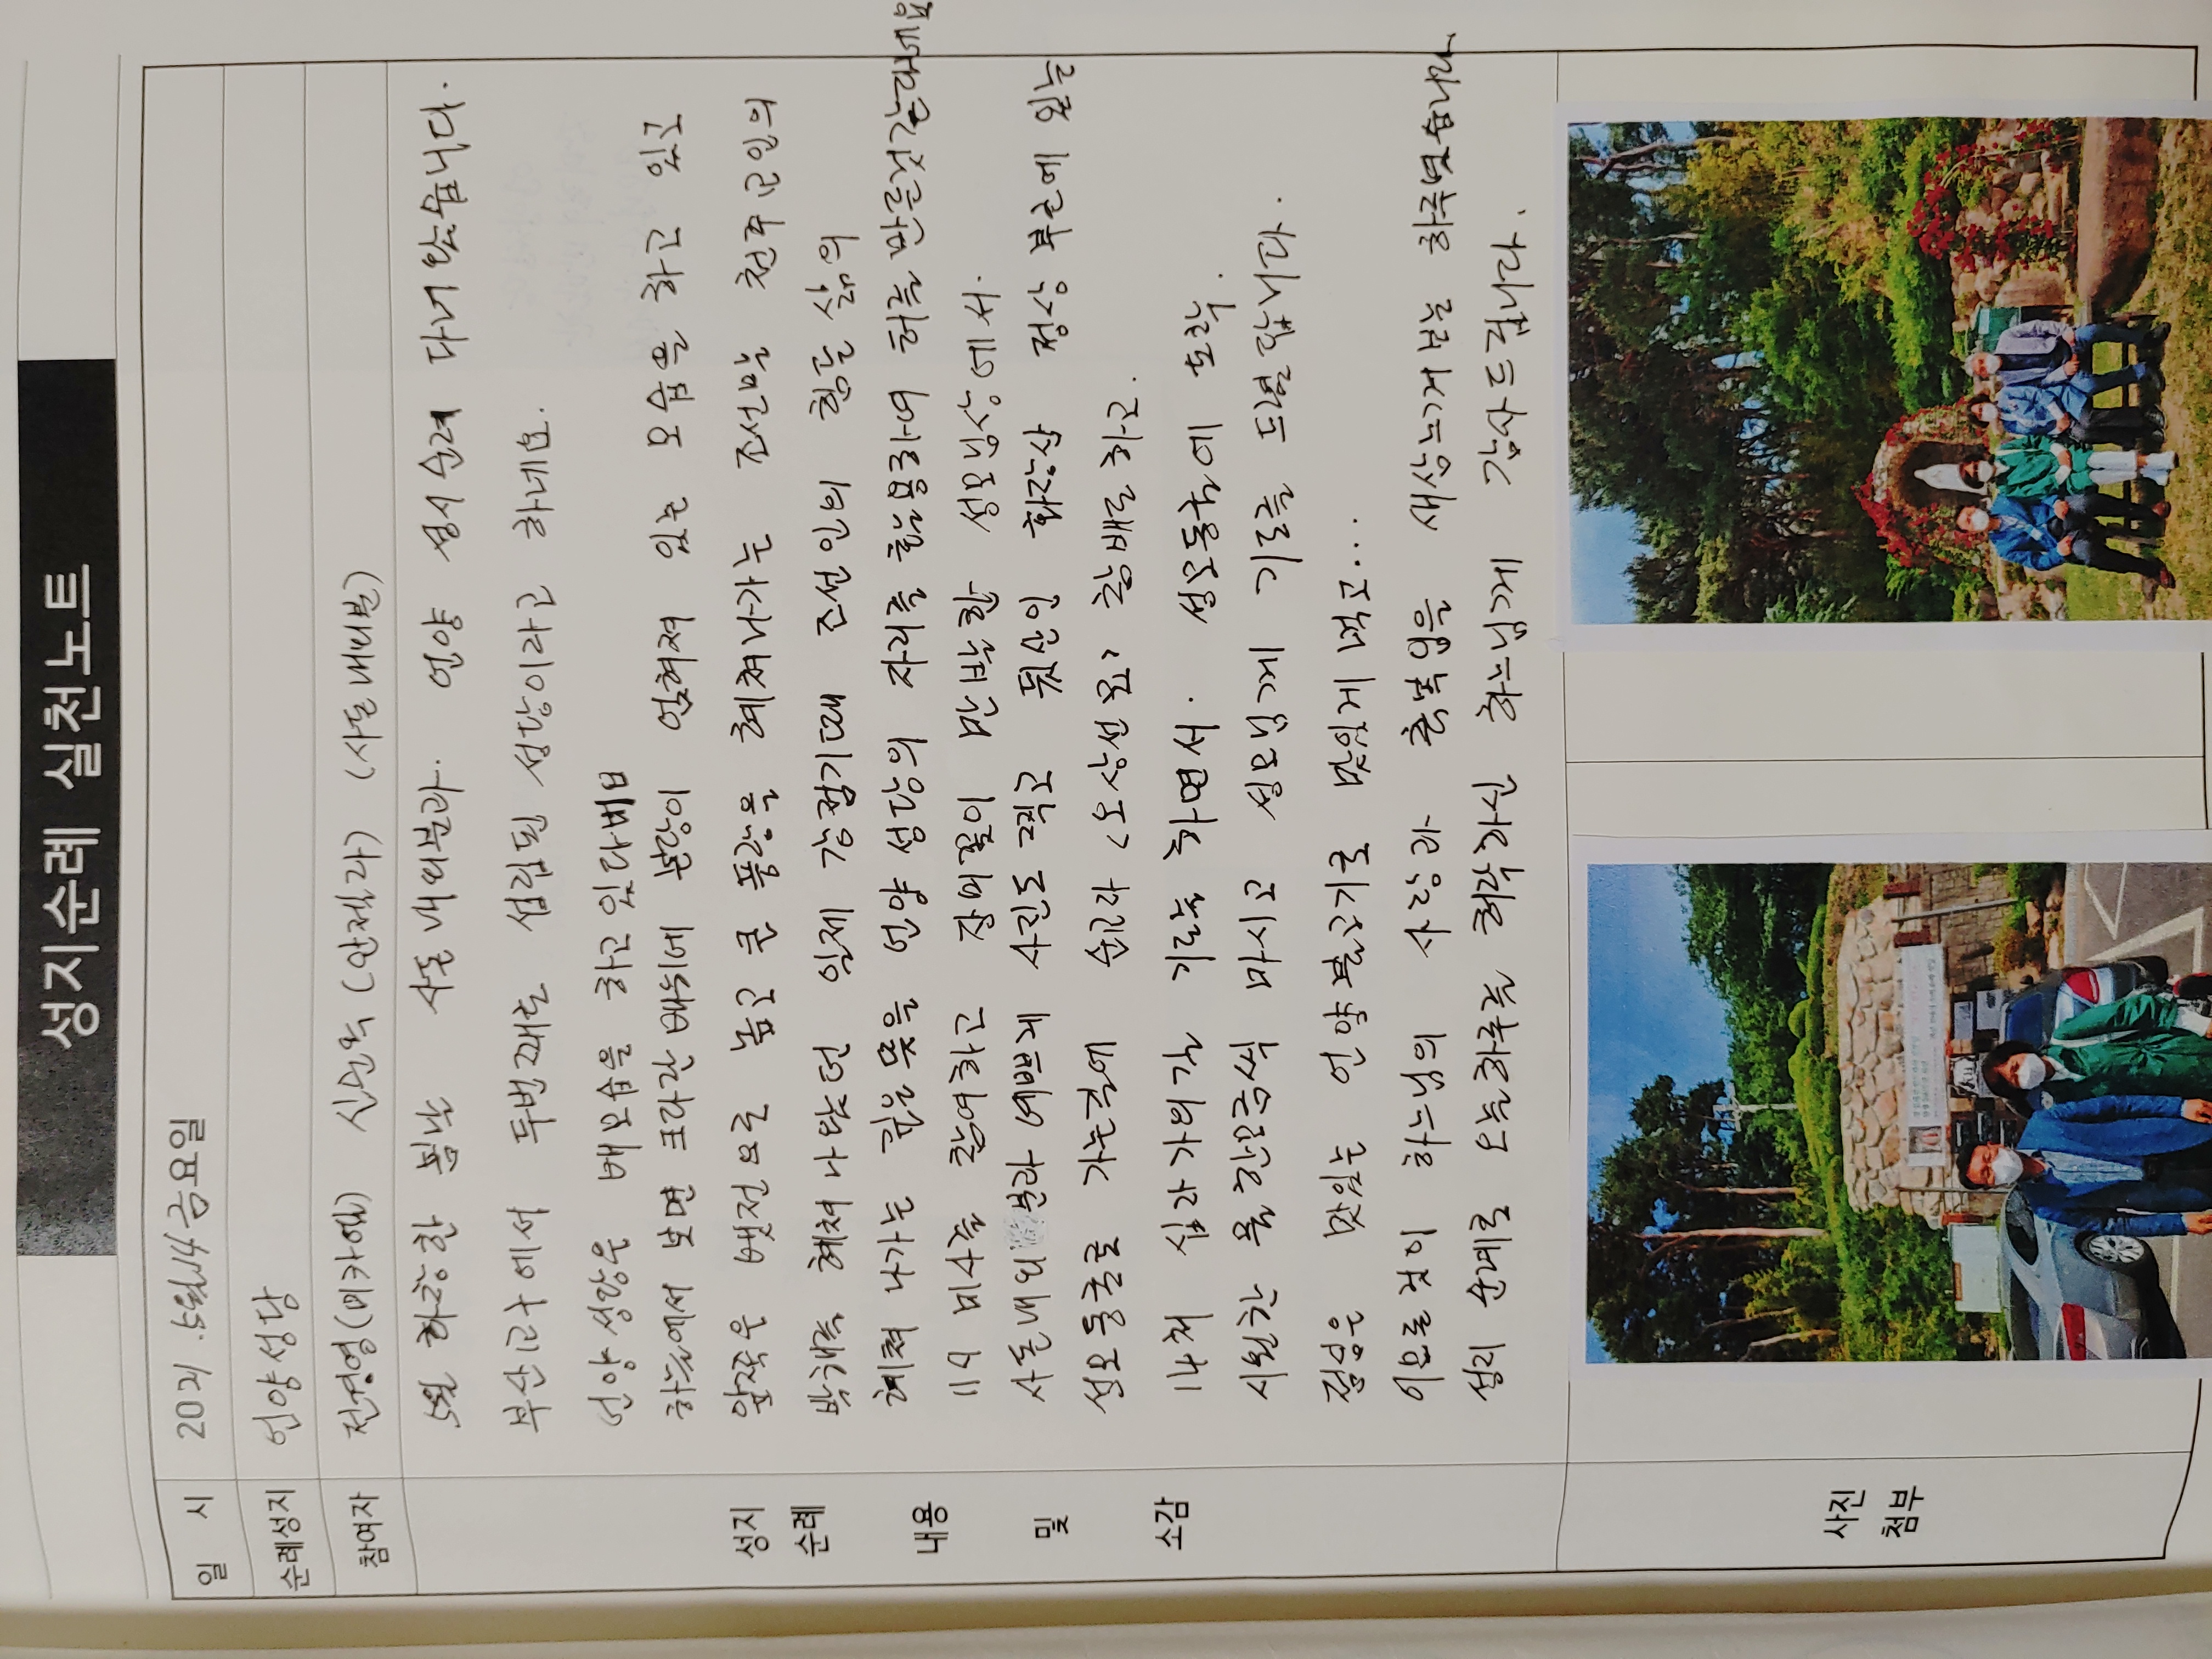 성지순례 실천노트
일 시 2021. 5월 14 금요일
순례성지 언양성당
참여자 전영(미카엘) 신순옥(안젤라) (사돈내외분)
5월 화창한 봄날 사돈 내외분과. 언양 성지 순례 다녀 왔습니다.
부산교구에서 두번째로 설립된 성당이라고 하네요.
언양성당은 배모습을 하고있다네요
하늘에서 보면 커다란 배위에 성당이 얹혀져 있는 모습을 하고 있고
앞쪽은 뱃전으로 높고 큰 풍랑을 헤쳐나가는 조선말 천주교인의
박해를 헤쳐 나왔던 일제 강점기때 조선인의 힘든 삶의
헤쳐 나가는 깊은 뜻을 언양 성당의 자리를 활용하여 터를 만든것 같다네요
11시 미사를 참여하고 장미꽃이 만발한 성모님상에서.
사돈내외분과 예쁘게 사진도 찍고 뒷산인 화장산 정상 부근에 있는
성모동굴로 가는길에 순교자 <오상선묘> 참배를 하고.
14처 십자가의길 기도를 하면서. 성모동굴에 도착.
시원한 물한모금씩 마시고 성모님께 기도를 드렸답니다.
점심은 맛있는 언양불고기로 맛있게 먹고...
이모든것이 하느님의 사랑과 축복임을 새삼느게보는 하루였습니다.
성지 순례로 오늘하루를 허락하신 하느님께 감사드립니다.
성지
순례
내용
및
소감
사진
첨부